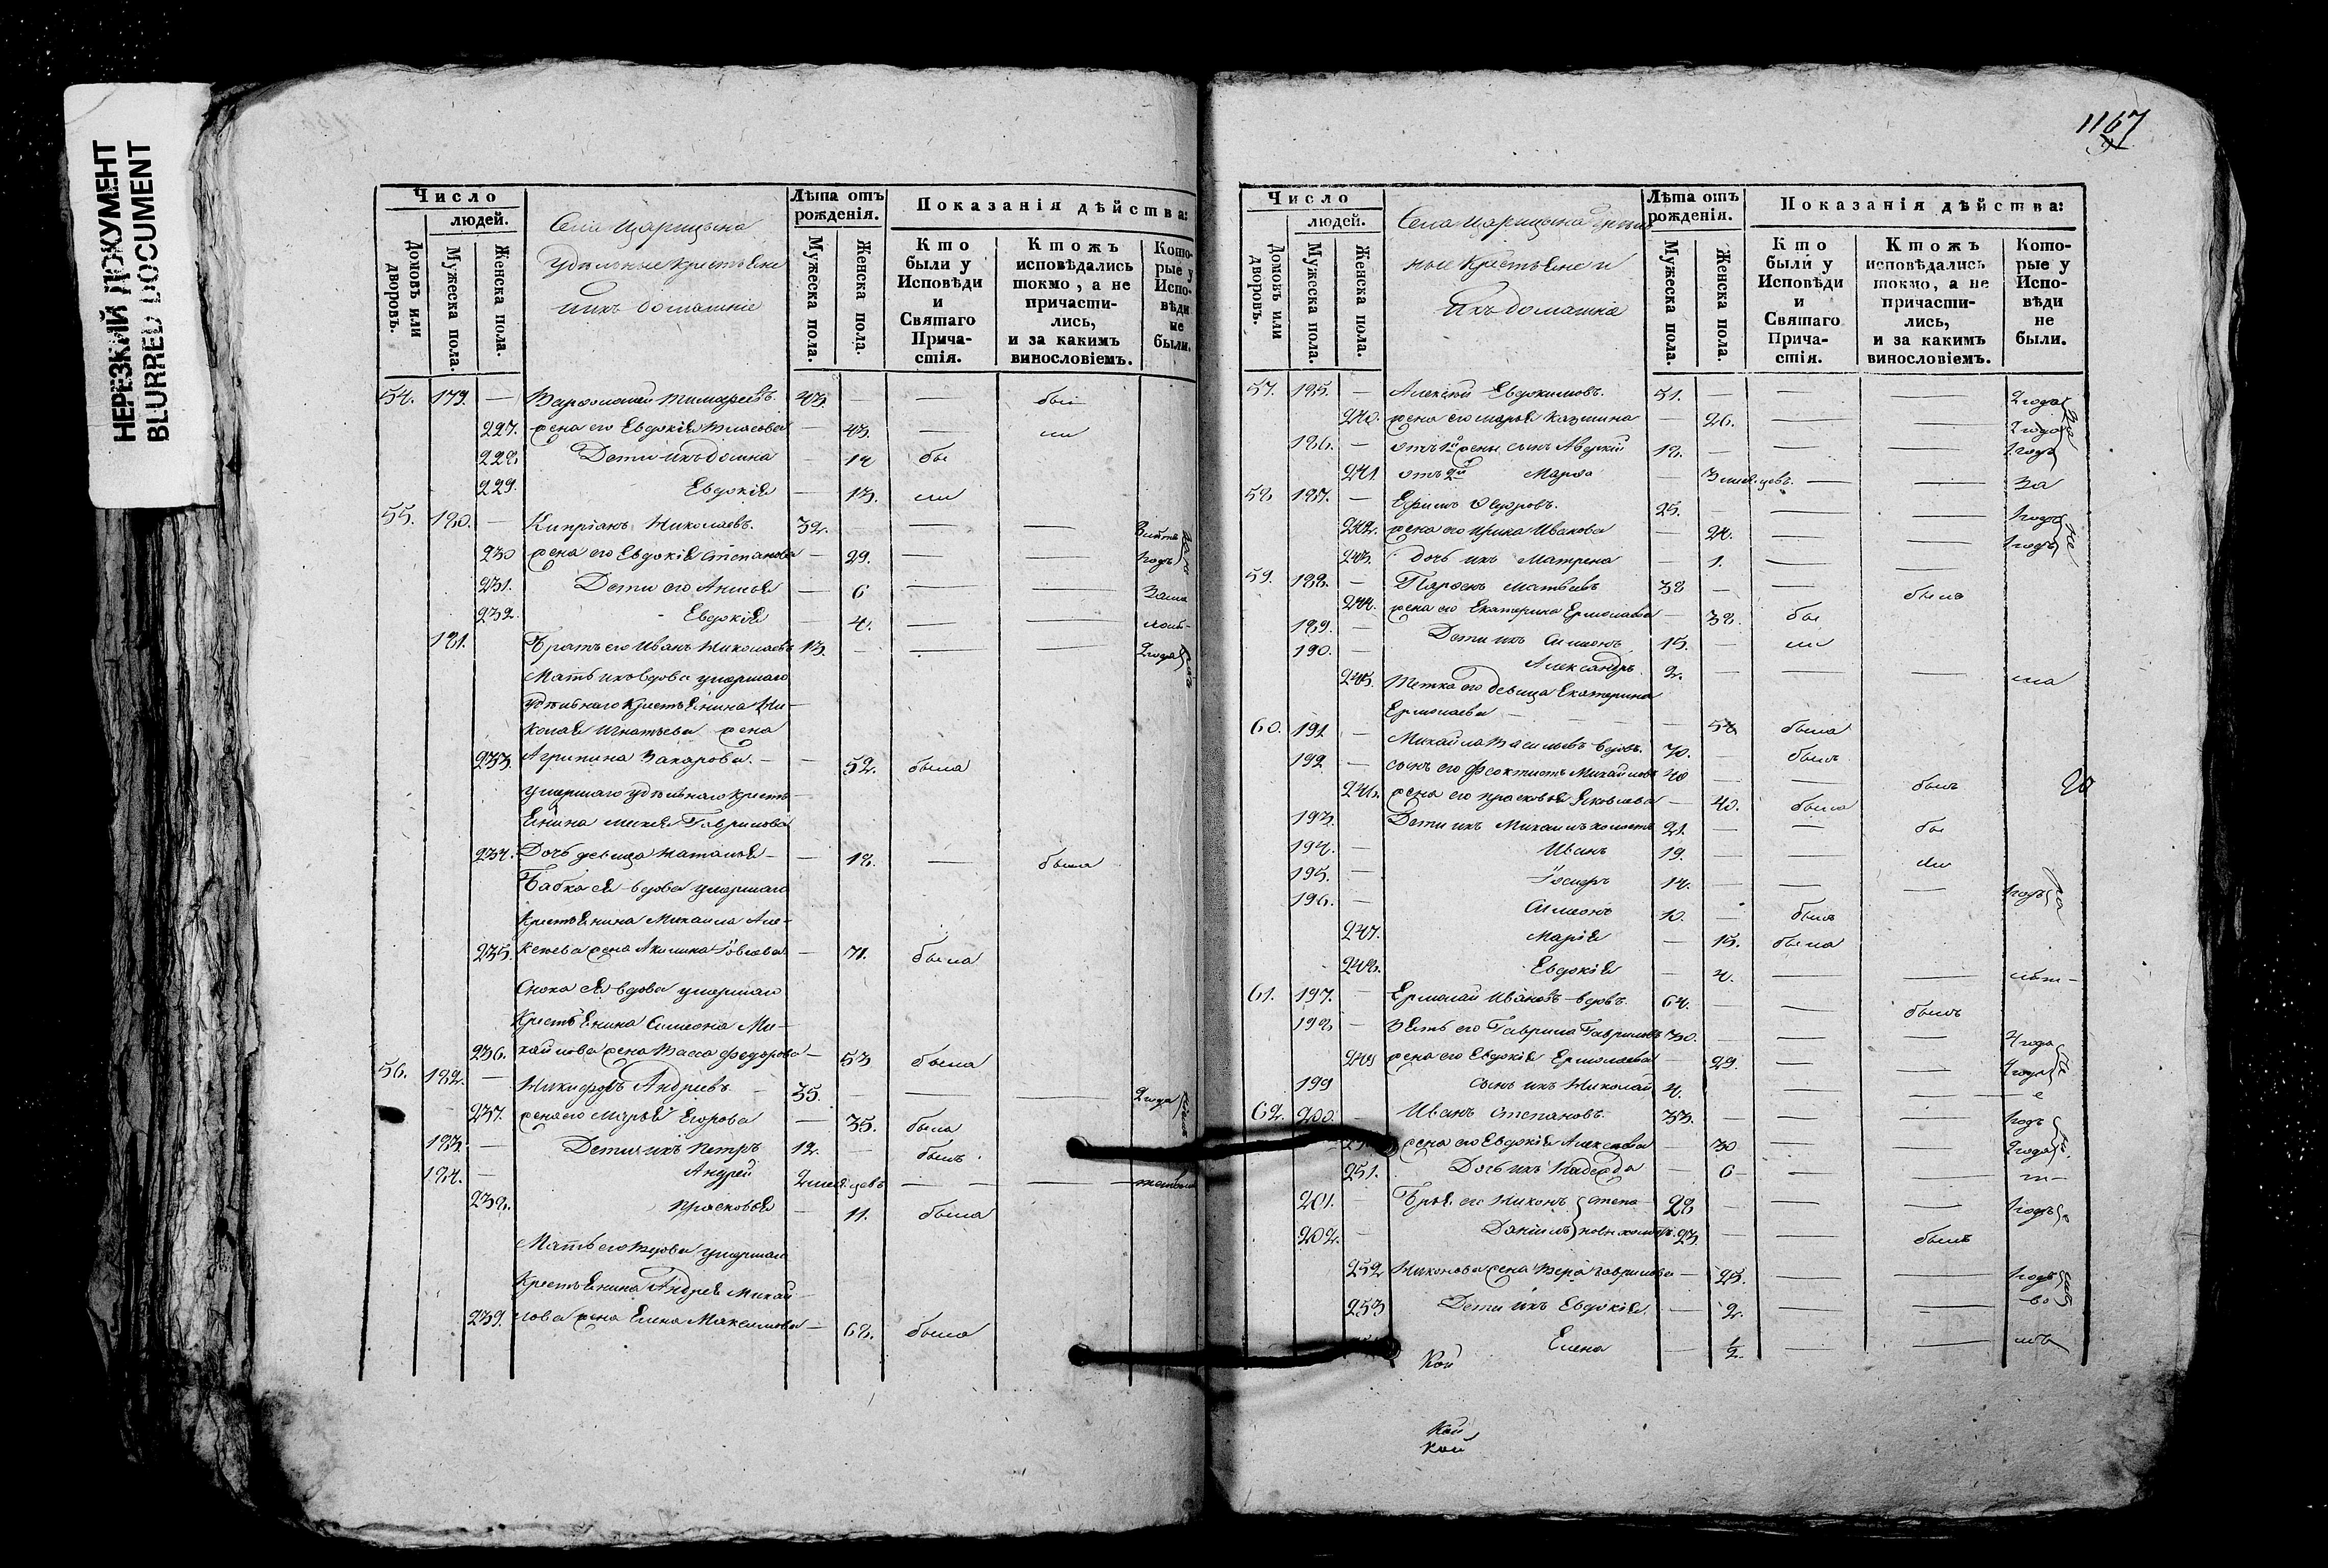 НЕРЕЗКИЙ ДОКУМЕНТ
BLURRED DOCUMENT
Число
людей.
Домовъ или дворовъ.
Мужеска пола.
Женска пола.
Села Царицына
удѣльные крестьяне
и ихъ домашніе
Лѣта отъ рожденія.
Мужеска пола.
Женска пола.
Показанія дѣйства:
Кто были у Исповѣди и Святаго Причастія.
Ктожъ исповѣдались токмо, а не причастились, и за какимъ винословіемъ.
Которые у Исповѣди не были.
54. 179. — Варѳоломей 43. — — бы
227. жена его Евдокія Власова — 43. — ли
228. Дети ихъ Домна — 14 бы
229. Евдокія — 13. ли
55. 180. — Кипріанъ Николаевъ. 32. — — —
230 жена его Евдокія Степанова — 29. — — 1 годъ
231. Дети его Анисья — 6 — — За ма
232. Евдокія — 4. — — лолѣ-
181. Братъ его Иванъ Николаевъ 13. — — — 2 года
Мать ихъ вдова умершаго
удѣльнаго крестьянина Ни-
колая Игнатьева жена
233. Агрипина Захарова. — — 52. была
умершаго удѣльнаго кресть-
янина Гаврилова
234. Дочь девица Наталья — — 18. — была
Бабка ея вдова умершаго
крестьянина Михаила Але-
235. ксеева жена Акилина — 71. была
Сноха ея вдова умершаго
Крестьянина Симеона Ми-
236. хайлова жена Васса Федорова — 53 была
56. 182. — Никифоръ Андреевъ — 35. — — — 2 года
237. жена его Марья Егорова — 35. была
183. — Дети ихъ Петръ 12. — былъ.
184. — Андрей 2 месяцевъ — — —
238. Прасковья — 11. была
Мать его вдова умершаго
Крестьянина Андрея Михай-
239. лова жена Елена Максимова — 68. была
1167
Число
людей.
Домовъ или дворовъ.
Мужеска пола.
Женска пола.
Села Царицына удѣль-
ные крестьяне и
ихъ домашніе
Лѣта отъ рожденія.
Мужеска пола.
Женска пола.
Показанія дѣйства:
Кто были у Исповѣди и Святаго Причастія.
Ктожъ исповѣдались токмо, а не причастились, и за какимъ винословіемъ.
Которые у Исповѣди не были.
57. 185. — Алексѣй Евдокимовъ. 51. — — — 2 года
240. жена его Марья Казмина 26. — — 2 года
186. — отъ 1й жены сынъ Авдкий 18. — — — 1 годъ
241 отъ 2й Марѳа — 3 месяцевъ. — — За
58 187. — Ефимъ 25. — — 1 годъ
242. жена его Ирина Иванова — 24. — — 1 годъ
243. дочь ихъ Матрена — 1. — —
59. 188. — Парѳенъ Матвеевъ 38 — — былъ
244. жена его Екатерина Ермолаева — 38. бы
189. — Дети ихъ Симеонъ 15. — ли
190. — Александръ 2. — — — ма
245. Тетка его девица Екатерина
Ермолаева — 54 была
60. 191 — Михайла Васильевъ вдовъ. 70. — былъ
192 — сынъ его Феоктистъ Михайловъ 40 — — былъ
246. жена его Прасковья Яковлева — 40. была
193. Дети ихъ Михаилъ холостъ 21. — — бы
194. — Иванъ 19. — — ли
195. — Іосифъ 14. — — — 1 годъ
196. — Симеонъ 10. — былъ
247. Марія — 15. была
248. Евдокія — 4. — — лѣт-
61. 197. — Ермолай Ивановъ вдовъ. 64. — — былъ
198 — Зять его Гаврила Гавриловъ 30. — — — 4 года
249 жена его Евдокія Ермолаева — 29. — — 4 года
199 сынъ ихъ Николай 4. — — — е
62. 200. Иванъ Степановъ. 33. — — — 1 годъ
жена его Евдокія Алексеева — 30 — — 2 года
251. Дочь ихъ Надежда — 6 — — т-
201. — Братья его Никонъ Степа- 28 — — — 1 годъ
202. — Даніилъ новы холостъ. 23. — — былъ
252 Никонова жена Вера Гаврилова — 25. — — 1 годъ
253 Дети ихъ Евдокія — 2. — — -во
Елена — 1/2. — — мъ
Кой
Кой
Кой